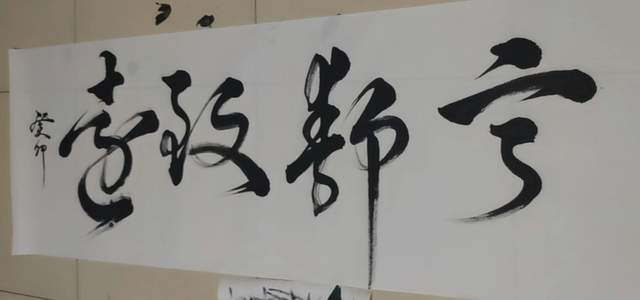 宁静致遠
癸卯